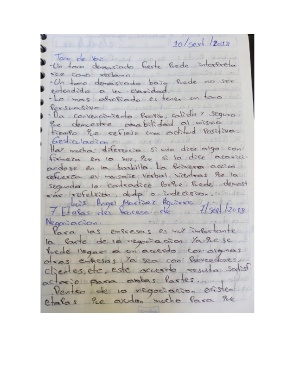 10/sept./2013
Tono de Voz
- Un tono demasiado fuerte Puede interpreta
rse como reclamo.
- Un tono demasiado bajo Puede no ser
entendido a un claridad.
- Lo mas es tener un tono
Persuasivo.
- Da convencimiento Fuerza, solido y seguro
Pue demuestre amabilidad al mismo
tiempo Pue refleja una actitud Positiva.
Gesticulacion
Hay mucha diferencia si uno dice algo con
firmeza en la voz, Pue si lo dice acarici
andose en la barbilla La Primera accion
refuerza el mensaje verbal, mientras Pue la
segunda lo contradice Porque Puede demost
rar duda o indecision.
Luis Angel Martinez
7 Etapas del Proceso de
Negociacion.
Para las empresas es muy importante
la Parte de la negociacion ya Pue se
Puede llegar a un acuerdo con algunas
otras empresas ya sea con Proveedores,
clientes, etc, este acuerdo resulta satisf
actorio para ambas Partes.
Dentro de la negociacion existen
etapas Pue ayudan mucho Para Pue